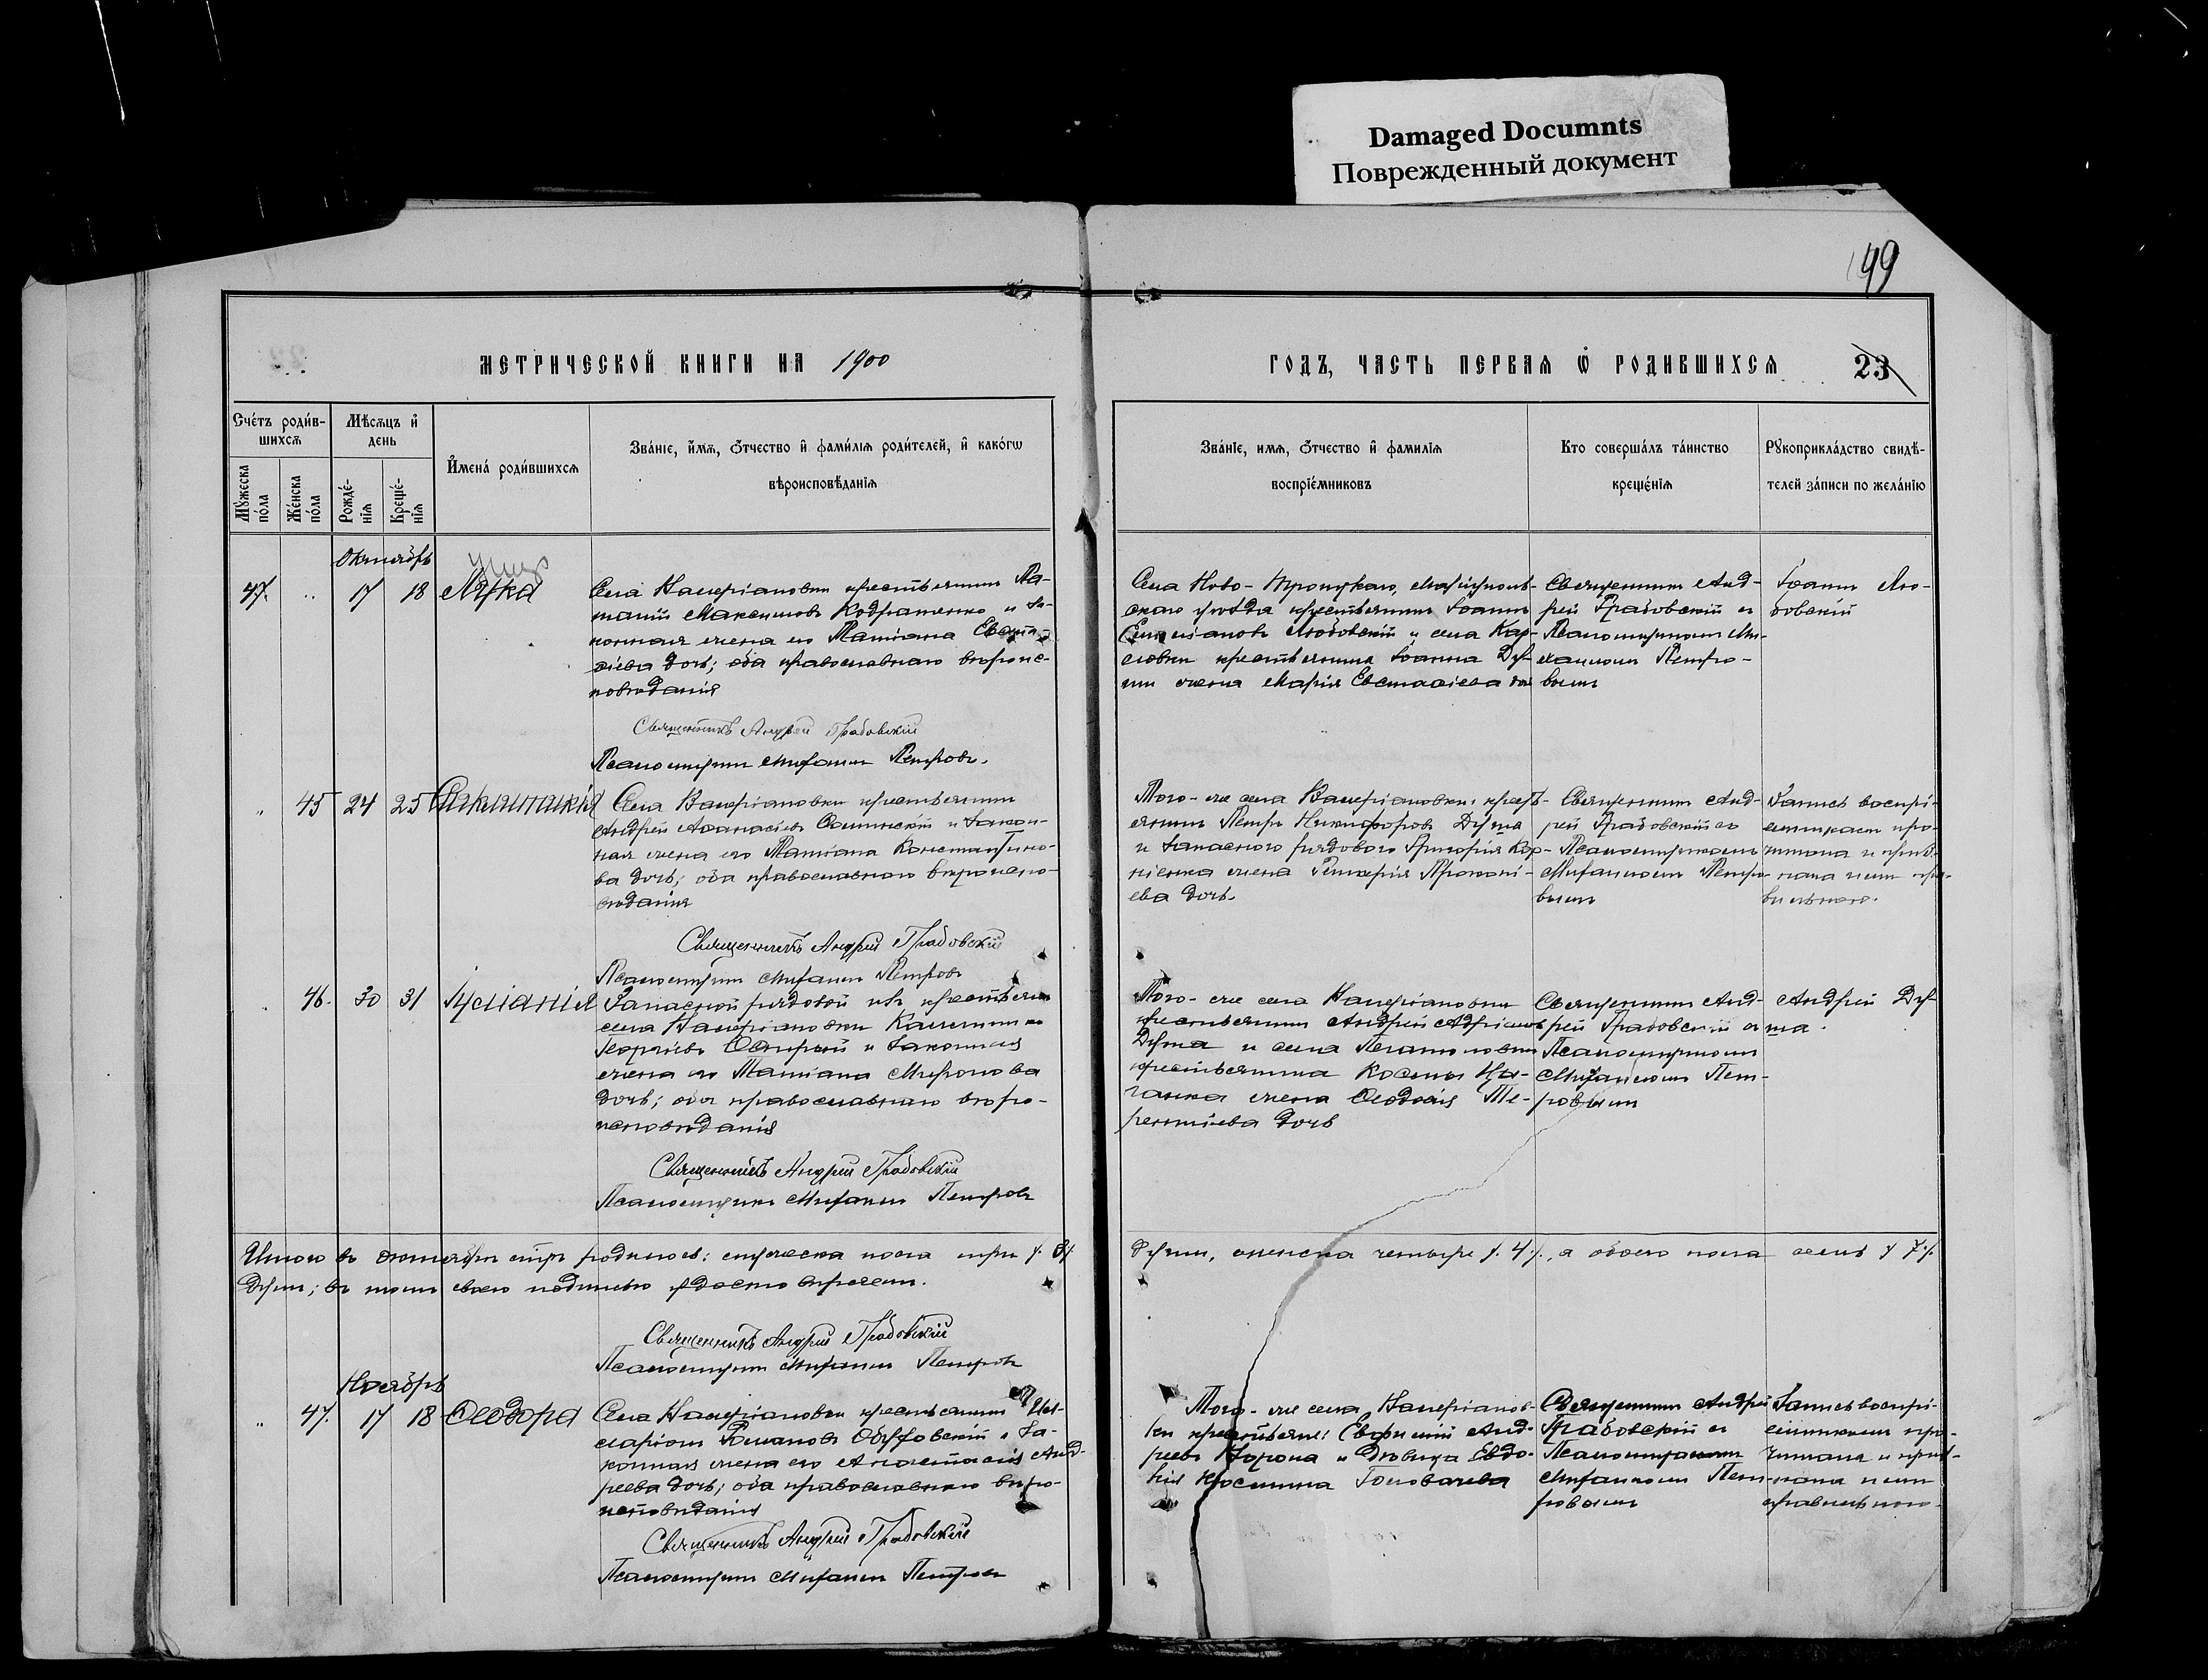 Damaged Documnts
Поврежденный документ
149
МЕТРИЧЕСКОЙ КНИГИ НА 1900
ГОДЪ, ЧАСТЬ ПЕРВАЯ Ѡ РОДИВШИХСЯ
23
Сче́тъ роди́в-
шихсѧ
Мѣсѧцъ и҆
день
Мꙋ́жеска
по́ла
Же́нска
по́ла
Рожде́-
нїѧ
Креще́-
нїѧ
И҆мена̀ роди́вшихсѧ
Зва́нїе, и҆́мѧ, ѻ҆́тчество и҆ фамѝлїѧ роди́телей, и҆ како́гѡ
вѣроисповѣ́данїѧ
Зва́нїе, имѧ, ѻ҆́тчество и҆ фамилїѧ
воспрїе́мниковъ
Кто соверша́лъ та́инство
креще́нїѧ
Рꙋкоприкла́дство свидѣ́-
телей за́писи по жела́нїю
Октябрь
47. .. 17 18 Лука
Села Валеріановки крестьянинъ Па-
Максимовъ Кодратенко и за-
конная жена его Татіана Евста-
ѳіева дочь; оба православнаго вѣроис-
повѣданія
Священникъ Андрей Грабовскій
Псаломщикъ Михаилъ Петровъ.
Села Ново-Троицкаго, Маріуполь-
скаго уѣзда крестьянинъ Іоаннъ
Емеліановъ Любовскій и села Кар-
ловки крестьянина Іоанна Ду-
жена Марія Евстаѳіева дочь
Священникъ Анд-
рей Грабовскій съ
Псаломщикомъ Ми-
хаиломъ Петро-
вымъ
Іоаннъ Лю-
бовскій
" 45 24 25
Села Валеріановки крестьянинъ
Андрей Аѳанасіевъ и закон-
ная жена его Татіана Константино-
ва дочь; оба православнаго вѣроиспо-
вѣданія
Священникъ Андрей Грабовскій
Псаломщикъ Михаилъ Петровъ
Того-же села Валеріановки, крестъ-
янинъ Петръ Никифоровъ Дума
и запаснаго рядоваго Григорія Кор-
ніенка жена Гликерія Прокопі-
ева дочь.
Священникъ Анд-
рей Грабовскій съ
Псаломщикомъ
Михаиломъ Петро-
вымъ
Запись воспрі-
емникамъ про-
читана и приз-
нана ими пра-
вильною.
" 46. 30 31 Іуліанія
Запасной рядовой изъ крестьянъ
села Валеріановки
Георгіевъ и законная
жена его Татіана Миронова
дочь; оба православнаго вѣро-
исповѣданія
Священникъ Андрей Грабовскій
Псаломщикъ Михаилъ Петровъ
Того-же села Валеріановки
крестьянинъ Андрей Адріановъ
Дума и села Платоновки
крестьянина Косьмы Цы-
ганка жена Ѳеодосія Те-
рентіева дочь
Священникъ Анд-
рей Грабовскій съ
Псаломщикомъ
Михаиломъ Пет-
ровымъ
Андрей Ду-
ма.
Итого въ октябрѣ м҃цѣ родилось: мужеска пола три /. 3 /.
души, женска четыре /. 4 /., а обоего пола семь /. 7 /.
душъ; въ томъ своею подписью удостовѣряемъ.
Священникъ Андрей Грабовскій
Псаломщикъ Михаилъ Петровъ
Ноябрь
" 47. 17 18 Ѳеодора
Села Валеріановки крестьянинъ Ил-
ларіонъ Романовъ Обуховскій и за-
конная жена его Анастасія Анд-
реева дочь; оба православнаго вѣро-
исповѣданія
Священникъ Андрей Грабовскій
Псаломщикъ Михаилъ Петровъ
Того-же села, Валеріанов-
ки крестьяне: Евфимій Анд-
реевъ и Дѣвица Евдо-
кія Головачева
Священникъ Андрей
Грабовскій съ
Псаломщикомъ
Михаиломъ Пет-
ровымъ
Запись воспрі-
емникамъ про-
читана и приз-
нана ими
правильною.